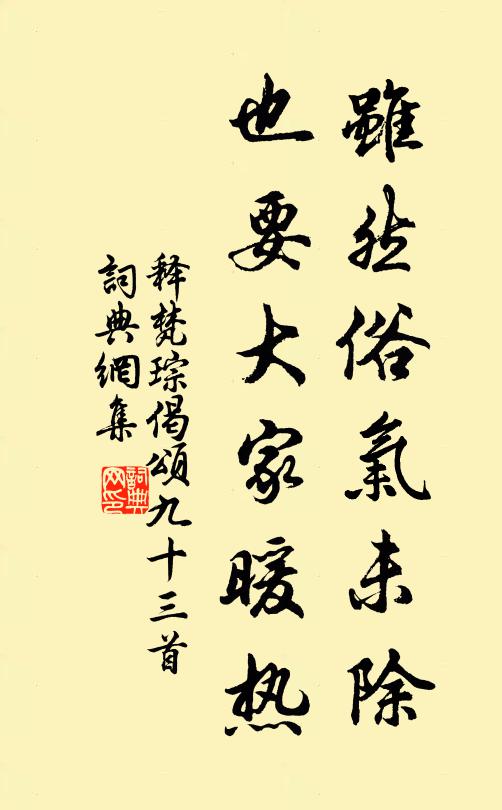 雖然俗氣未除
也要大家暖热
释梵琮偈頌九十三首
詞典網集
詞典網印